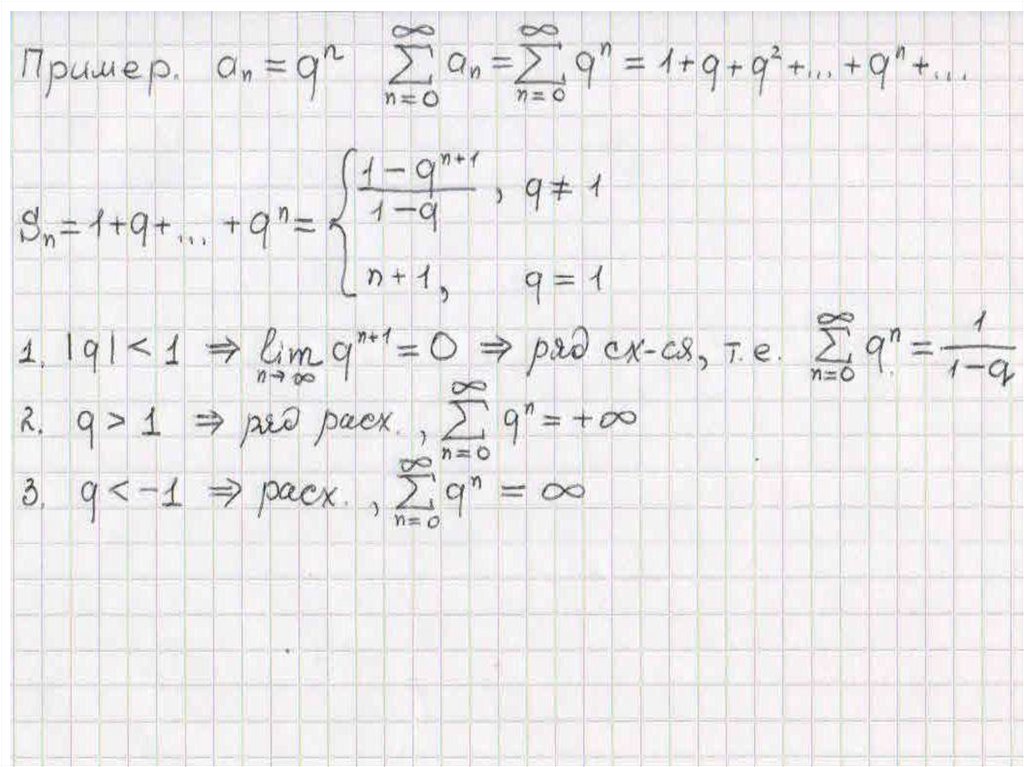 Пример. aₙ = qⁿ ∑ₙ₌₀^∞ aₙ = ∑ₙ₌₀^∞ qⁿ = 1+q+q²+...+qⁿ+...
Sₙ = 1+q+...+qⁿ = { (1-qⁿ⁺¹)/(1-q), q ≠ 1
n+1, q = 1
1. |q| < 1 ⇒ lim_{n→∞} qⁿ⁺¹ = 0 ⇒ ряд сх-ся, т.е. ∑ₙ₌₀^∞ qⁿ = 1/(1-q)
2. q > 1 ⇒ ряд расх., ∑ₙ₌₀^∞ qⁿ = +∞
3. q < -1 ⇒ расх., ∑ₙ₌₀^∞ qⁿ = ∞